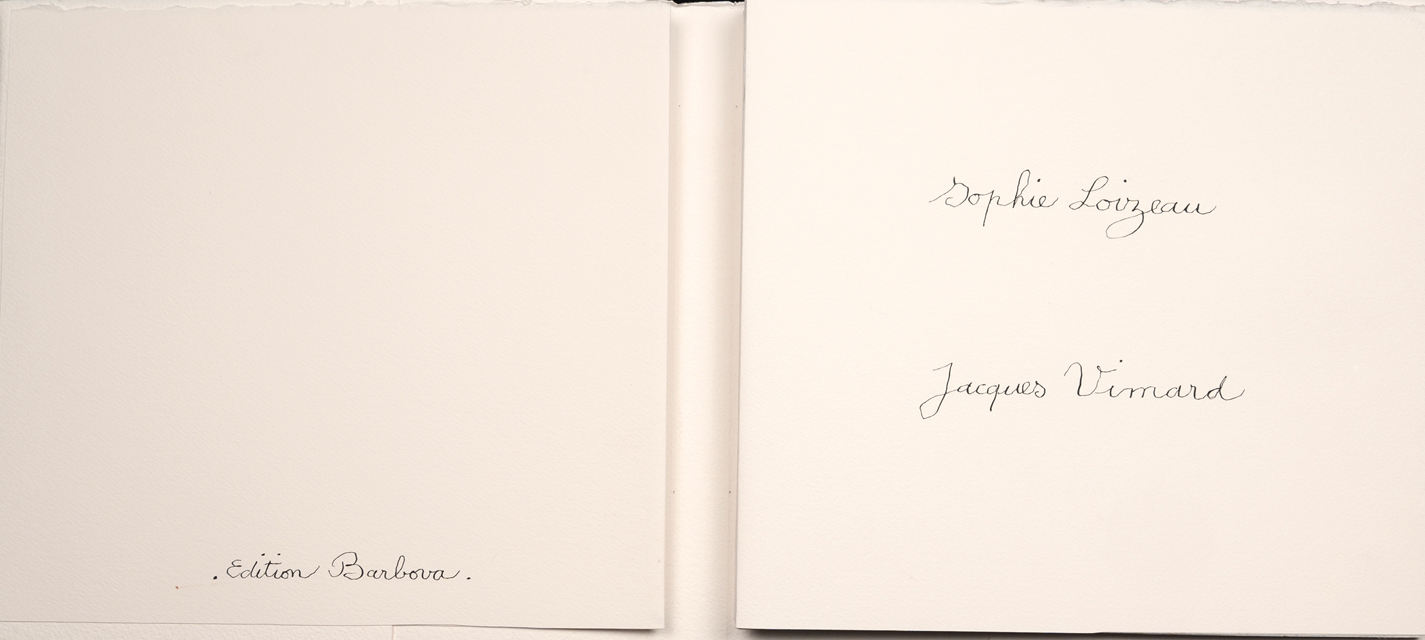 . Edition Barbova .
Sophie Loizeau
Jacques Vimard